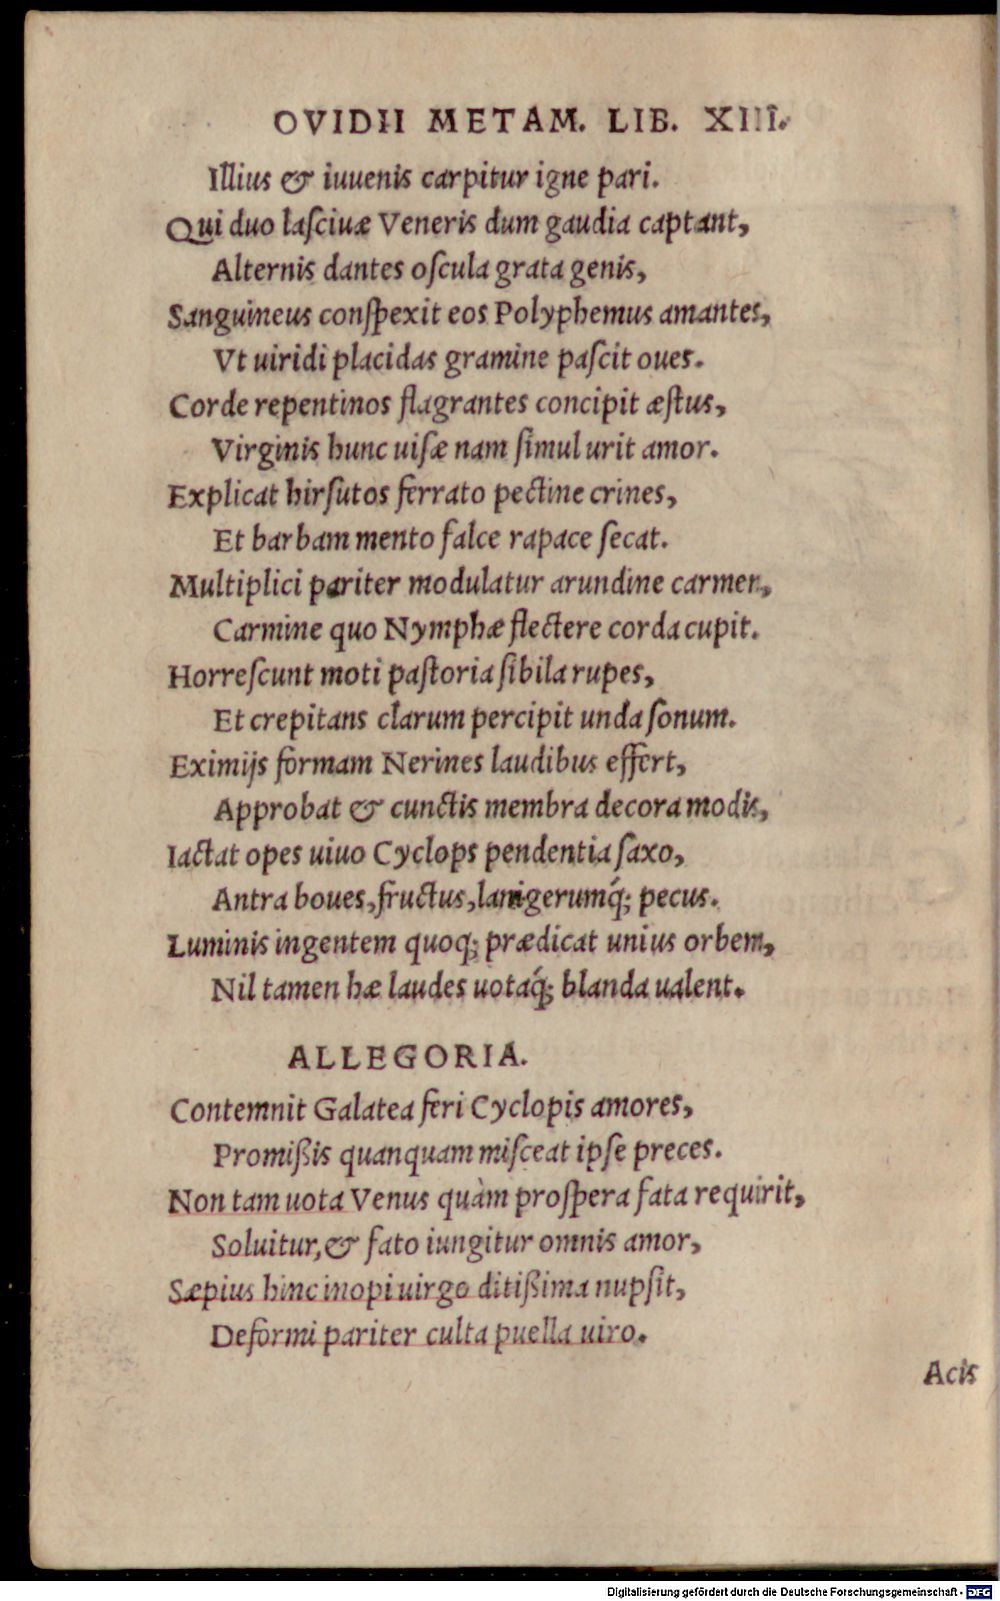 OVIDII METAM. LIB. XIII.
Illius & iuuenis carpitur igne pari.
Qui duo laſciuæ Veneris dum gaudia captant,
Alternis dantes oſcula grata genis,
Sanguineus conſpexit eos Polyphemus amantes,
Vt uiridi placidas gramine paſcit oues.
Corde repentinos flagrantes concipit æſtus,
Virginis hunc uiſæ nam ſimul urit amor.
Explicat hirſutos ferrato pectine crines,
Et barbam mento falce rapace ſecat.
Multiplici pariter modulatur arundine carmen,
Carmine quo Nymphæ flectere corda cupit.
Horreſcunt moti paſtoria ſibila rupes,
Et crepitans clarum percipit unda ſonum.
Eximijs formam Nerines laudibus effert,
Approbat & cunctis membra decora modis,
Iactat opes uiuo Cyclops pendentia ſaxo,
Antra boues, fructus, lanigerumq́; pecus.
Luminis ingentem quoq; prædicat unius orbem,
Nil tamen hæ laudes uotaq́; blanda ualent.
ALLEGORIA.
Contemnit Galatea feri Cyclopis amores,
Promißis quanquam miſceat ipſe preces.
Non tam uota Venus quàm proſpera fata requirit,
Soluitur, & fato iungitur omnis amor,
Sæpius hinc inopi uirgo ditißima nupſit,
Deformi pariter culta puella uiro.
Acis
Digitalisierung gefördert durch die Deutsche Forschungsgemeinschaft - DFG